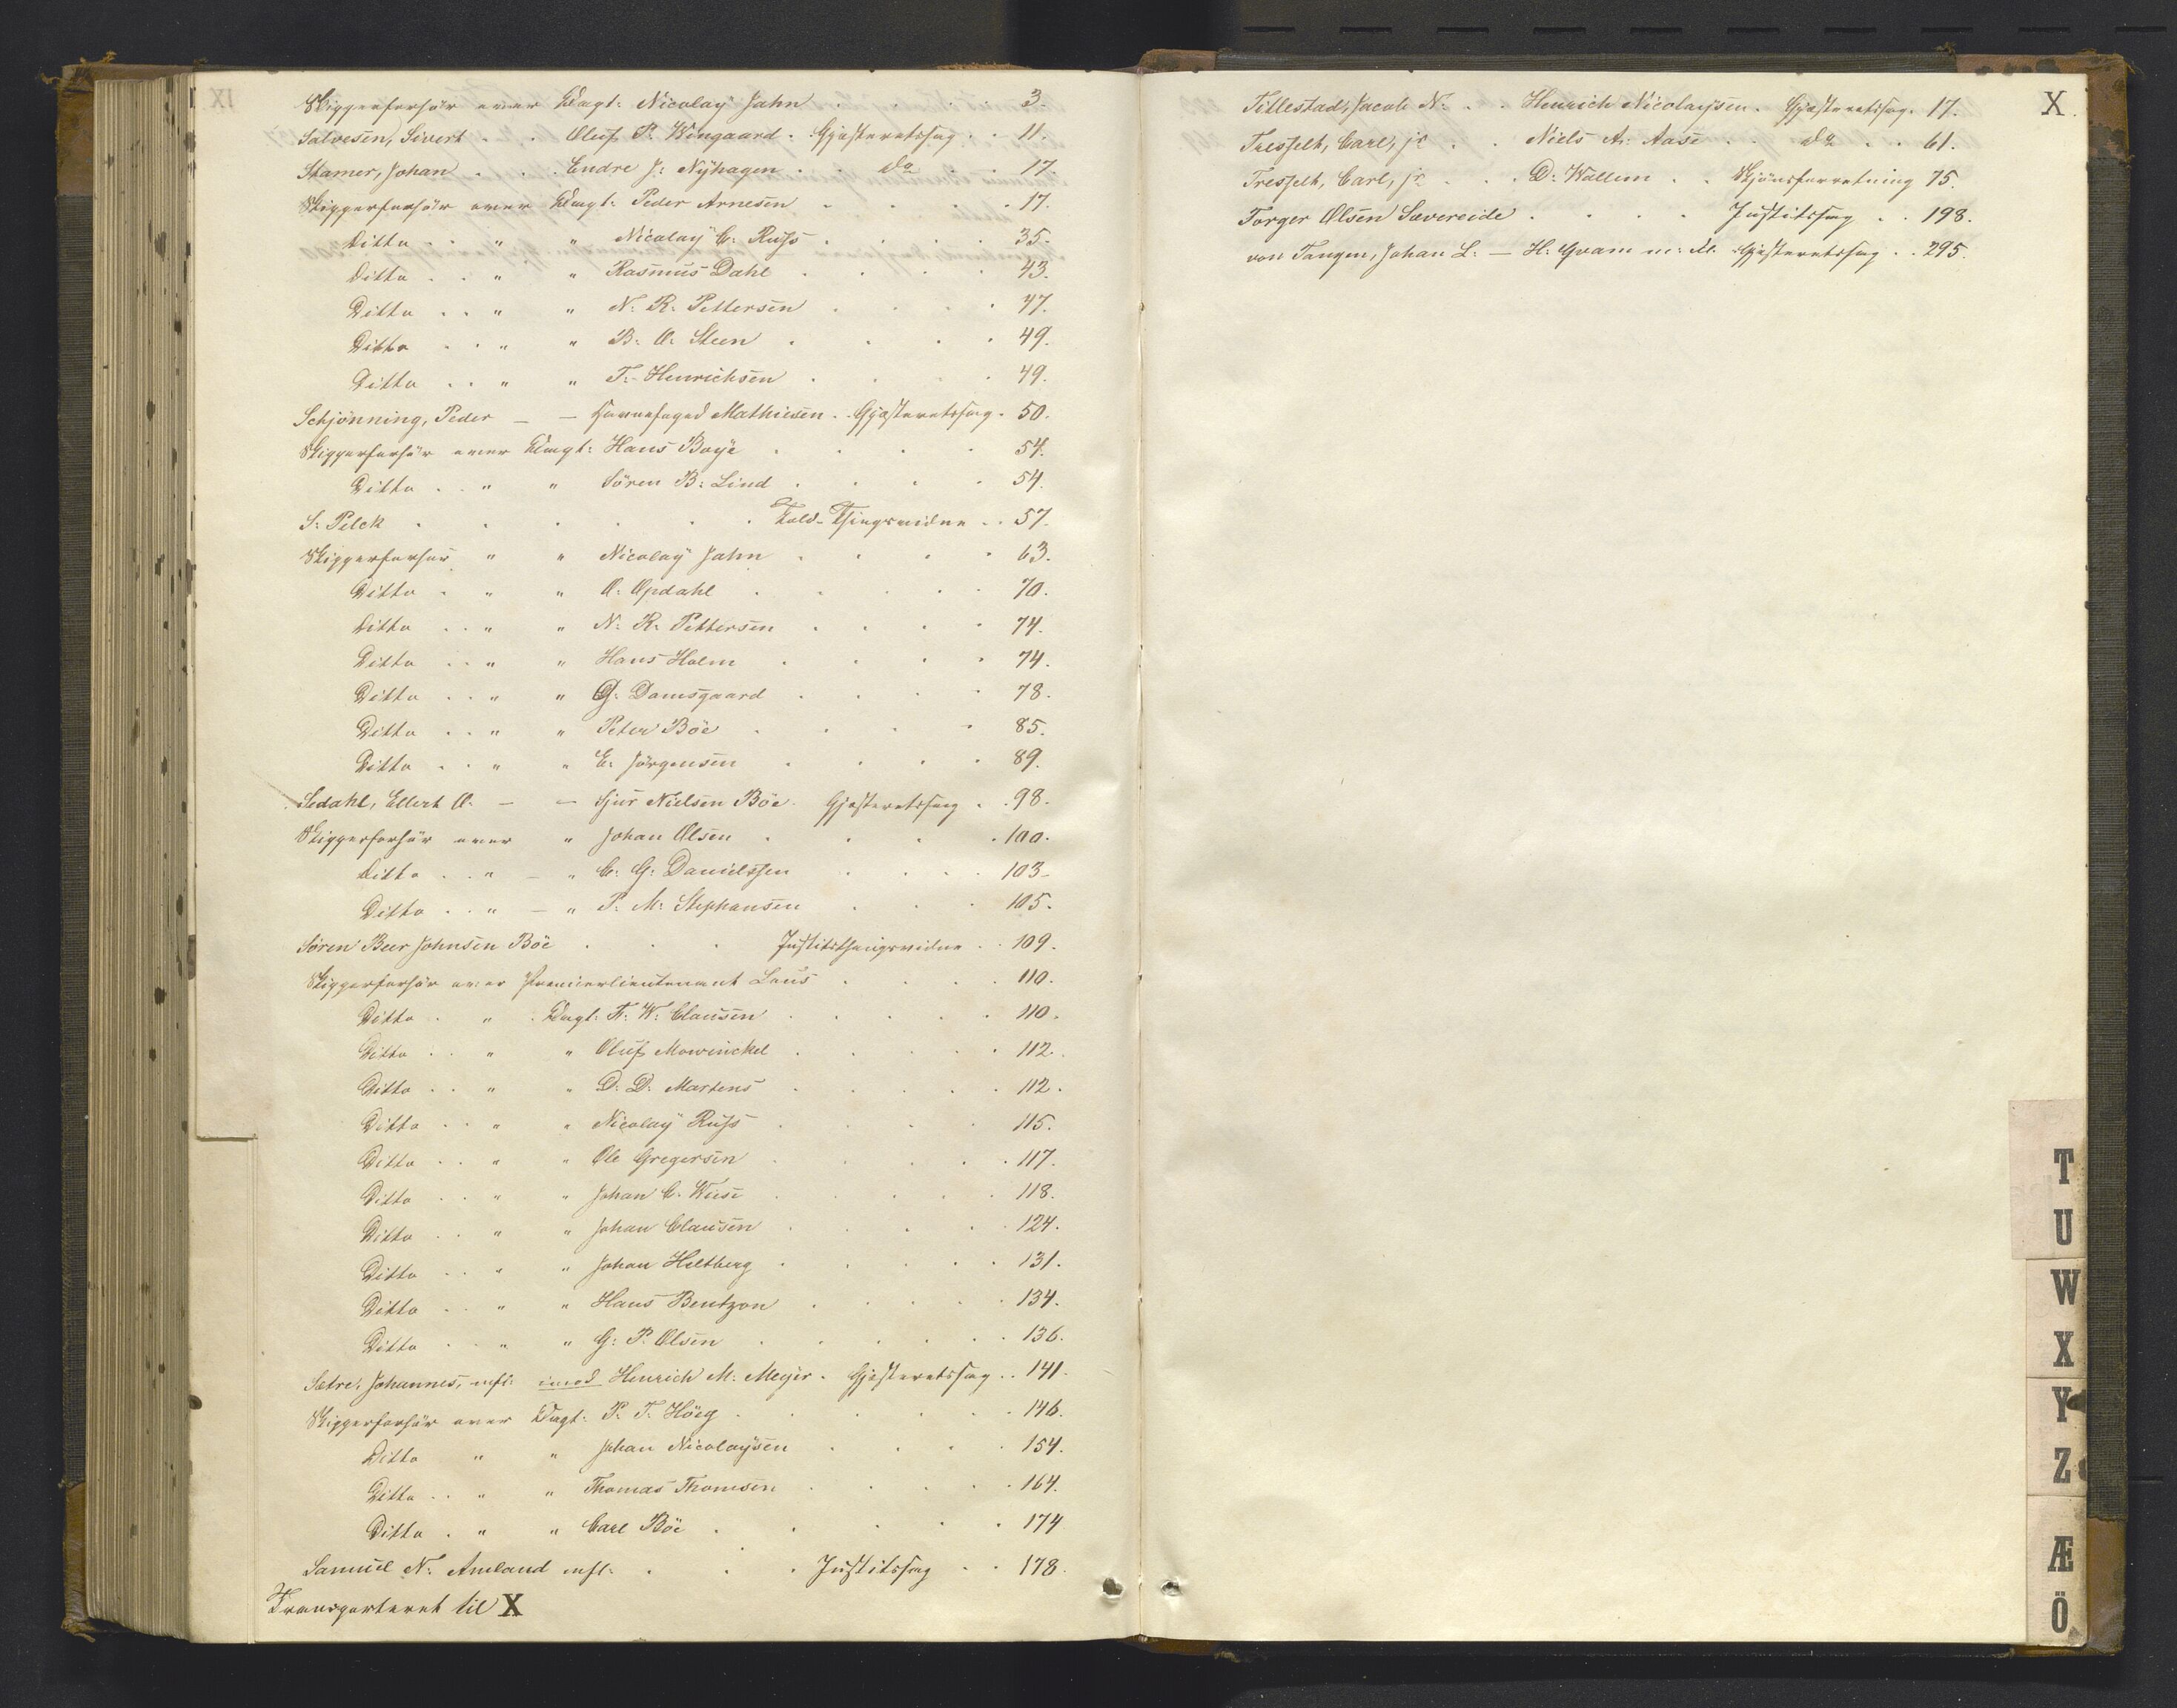 Skipperforhör over Kapt: Nicolay Jahn . . . . 3.
Salvesen, Sivert . . Oluf P. Wingaard . Gjæsteretssag . . 11.
Stamer, Johan . . . Endre J: Nÿhagen . . do . . 17.
Skipperforhör over Kapt: Peder Arnesen . . . . 17.
Ditto . . " " Nicolay C: Russ . . . . 35.
Ditto . . " " Rasmus Dahl . . . . 43.
Ditto . . " " N. R. Pettersen . . . . 47.
Ditto . . " " B. O. Steen . . . . 49.
Ditto . . " " T. Henrichsen . . . 49.
Schjönning, Peder — — Havnefoged Mathiesen . . Gjæsteretssag . 50.
Skipperforhör over Kapt: Hans Boÿe . . . . 54.
Ditto . . " " Sören B: Lind . . . . 54.
S. Pilck . . . . . . Told-Thingsvidne . . 57.
Skipperforhör " " Nicolaÿ Jahn . . . . 63.
Ditto . " " O. Opdahl . . . . . 70.
Ditto . . " " N. R. Pettersen . . . . 74.
Ditto . . " " Hans Holm . . . . 74.
Ditto . . " " G. Damsgaard . . . . 78.
Ditto . . " " Peter Böe . . . . 85.
Ditto . . " " E. Jörgensen . . . . 89.
Sedahl, Ellert O. — — Sjur Nielsen Böe . Gjæsteretssag . . 98.
Skipperforhör over " Johan Olsen . . . . 100.
Ditto . . " — " C. G. Danielssen . . . . 103–
Ditto . . " — " P. M. Stephansen . . . 105.
Sören Beer Johnsen Böe . . . Justitsthingsvidne . . 109.
Skipperforhör over Premierlieutenant Lous . . . . 110.
Ditto . " . Kapt: F. W. Clausen . . . . . 110.
Ditto . . " " Oluf Mowinckel . . . . . 112.
Ditto . . " " D. D. Martens . . . . . 112.
Ditto . . " " Nicolaÿ Russ . . . . 115.
Ditto . . " " Ole Gregersen . . . . . 117.
Ditto . . " " Johan C. Wiese . . . . . 118.
Ditto . . " " Johan Clausen . . . . . 124.
Ditto . . " " Johan Heltberg . . . . . 131.
Ditto . . " " Hans Bentzon . . . . . 134.
Ditto . . " " G: P. Olsen . . . . . 136.
Sætre, Johannes, mfl: imod Henrich M. Meÿer . Gjæsteretssag . . 141.
Skipperforhör over Kapt: P. T. Höeg . . . . . 146.
Ditto " " Johan Nicolaÿsen . . . . 154.
Ditto . . " " Thomas Thomsen . . . . . 164.
Ditto . " " Carl Böe . . . . . 174
Samuel N. Amland mfl. . . . Justitssag . . 178.
Transporteret til X
X.
Tillestad, Jacob N. . . Henrich Nicolaysen . Gjæsteretssag . 17.
Tresselt, Carl, jr . . Niels A. Aase . . do . . 61.
Tresselt, Carl, jr . . . D. Wallem . . Skjönsforretning 75.
Torger Olsen Sævereide . . . . Justitssag . . 198.
von Tangen, Johan L. — H. Gram m: fl. Gjæsteretssag . . 295.
T
U
W
X
Y
Z
Æ
Ö